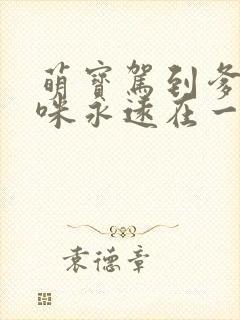 萌寶駕到爹
咪永遠在一
袁德章